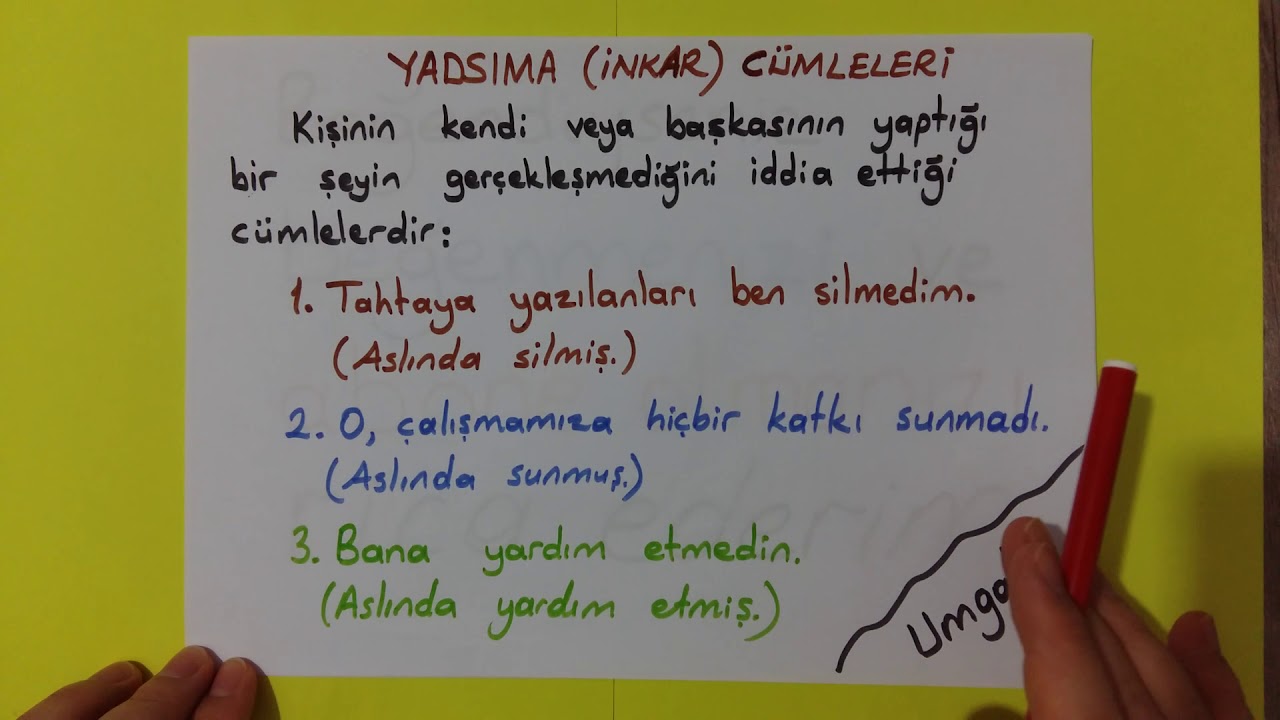 YADSIMA (İNKAR) CÜMLELERİ
Kişinin kendi veya başkasının yaptığı
bir şeyin gerçekleşmediğini iddia ettiği
cümlelerdir:
1. Tahtaya yazılanları ben silmedim.
(Aslında silmiş.)
2. O, çalışmamıza hiçbir katkı sunmadı.
(Aslında sunmuş.)
3. Bana yardım etmedin.
(Aslında yardım etmiş.)